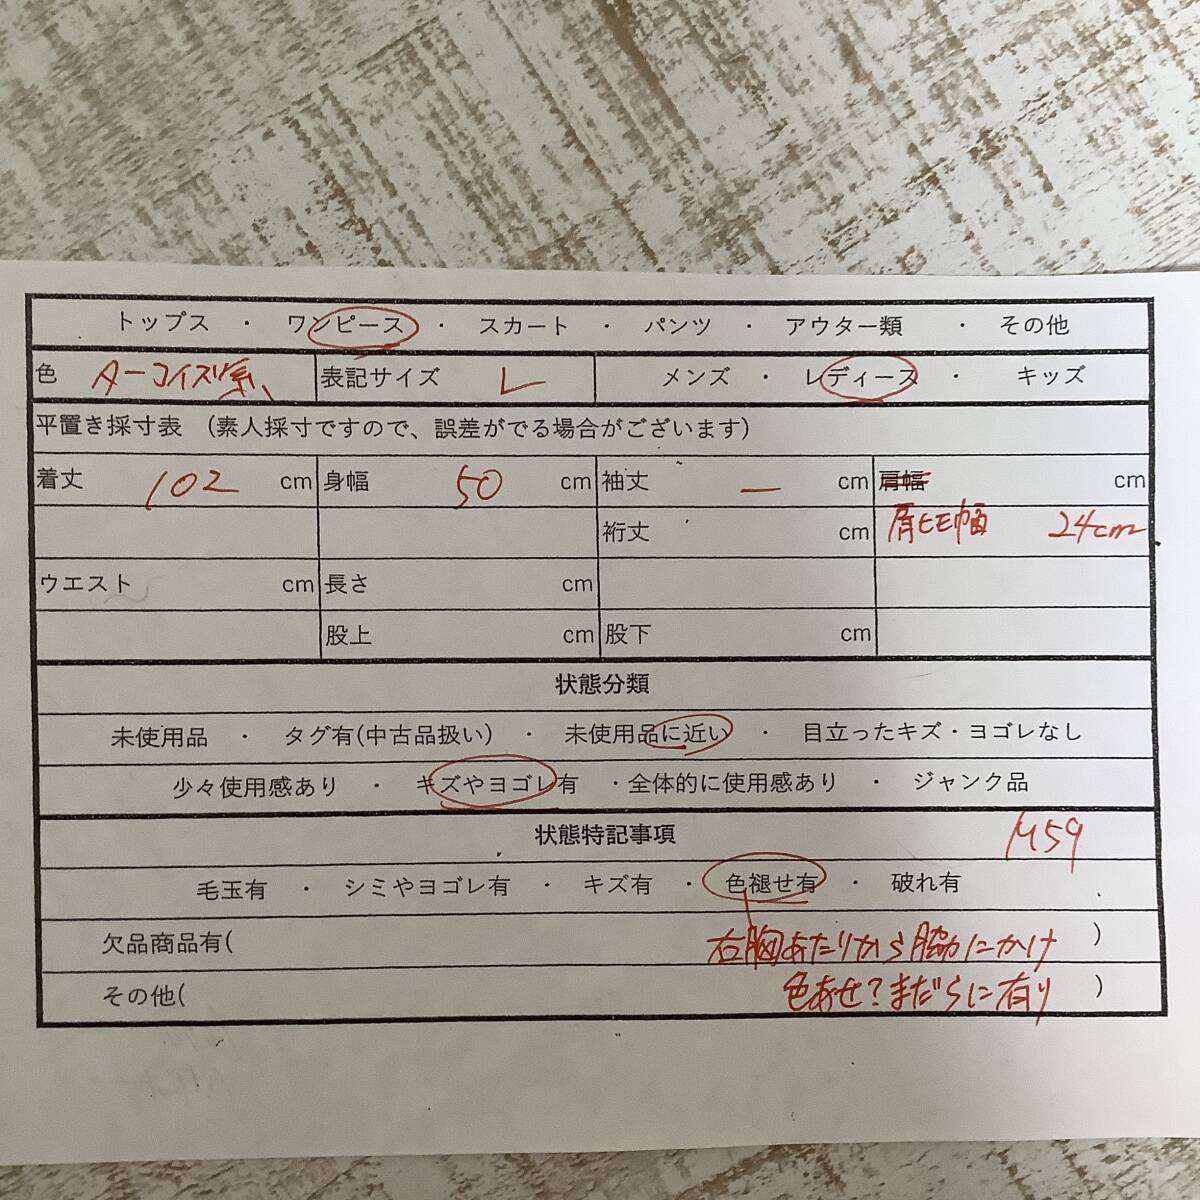 トップス ・ ワンピース ・ スカート ・ パンツ ・ アウター類 ・ その他
色 ターコイズ系 表記サイズ L メンズ ・ レディース ・ キッズ
平置き採寸表 (素人採寸ですので、誤差がでる場合がございます)
着丈 102 cm 身幅 50 cm 袖丈 ー cm 肩幅 cm
裄丈 cm 肩ヒモ幅 24cm
ウエスト cm 長さ cm
股上 cm 股下 cm
状態分類
未使用品 ・ タグ有(中古品扱い) ・ 未使用品に近い ・ 目立ったキズ・ヨゴレなし
少々使用感あり ・ キズやヨゴレ有 ・全体的に使用感あり ・ ジャンク品
状態特記事項 M59
毛玉有 ・ シミやヨゴレ有 ・ キズ有 ・ 色褪せ有 ・ 破れ有
欠品商品有( 右胸あたりから脇にかけ )
その他( 色あせ?まだらに有り )